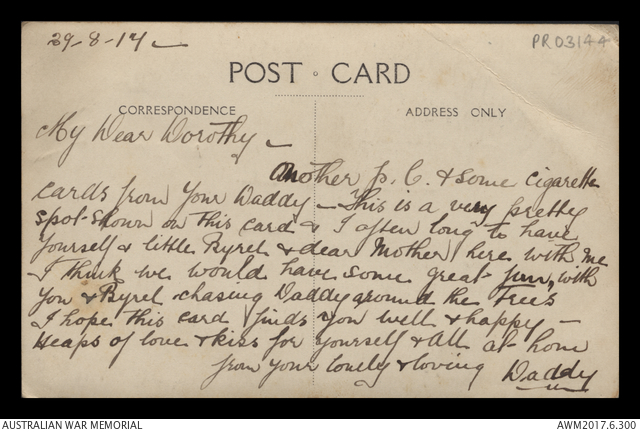 29-8-17
PR03144
POST CARD
CORRESPONDENCE
ADDRESS ONLY
My Dear Dorothy –
Another p. C. & some cigarette
cards from your Daddy – This is a very pretty
spot shown on this card & I often long to have
yourself & little Byrel & dear Mother here with me
I think we would have some great fun, with
you & Byrel chasing Daddy around the Trees
I hope this card finds you well & happy –
Heaps of love & kiss for yourself & All at home
from your lonely & loving Daddy
AUSTRALIAN WAR MEMORIAL
AWM2017.6.300